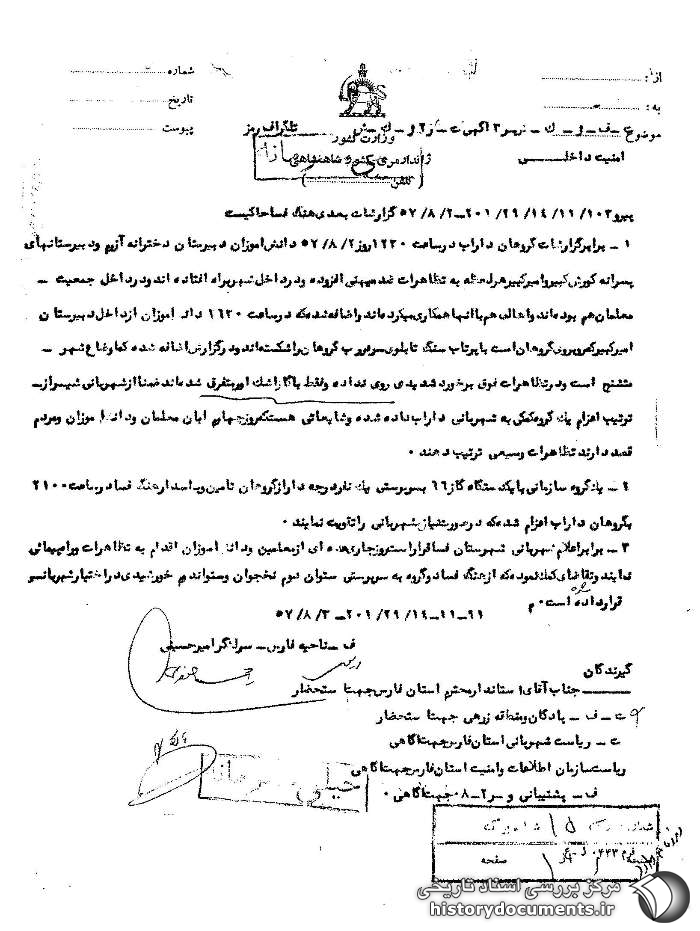 شماره
از:
تاریخ
به:
پیوست
موضوع
تلگراف رمز
وزارت کشور
امنیت داخلی
ژاندارمری کشور شاهنشاهی
(تلفن)
پیرو ۱۰۳/ ۱۱/ ۱۴/ ۲۹/ ۲۰۱ـ ۵۷/۸/۲ گزارشات بعدی هنگ فسا حاکیست
۱ ـ برابر گزارشات گروهان داراب در ساعت ۱۲۳۰ روز ۵۷/۸/۲ دانش اموزان دبیرستان دخترانه آزرم و دبیرستانهای
پسرانه کورش کبیر و امیرکبیر هر لحظه به تظاهرات ضد میهنی افزوده و در داخل شهر براه افتاده اند و در داخل جمعیت ـ
معلمان هم بوده اند و اهالی هم با انها همکاری میکرده اند و اضافه شده که در ساعت ۱۶۳۰ دانش اموزان از داخل دبیرستان
امیرکبیر که روبروی گروهان است با پرتاب سنگ تابلوی سر درب گروهان را شکسته اند و در گزارش اضافه شده که اوضاع شهر ـ
متشنج است و در تظاهرات فوق برخورد شدیدی روی نداده و فقط با گاز اشک اور متفرق شده اند ضمنا از شهربانی شیراز ـ
ترتیب اعزام یک گروه کمکی به شهربانی داراب داده شده و شایعاتی هست که روز چهارم ابان معلمان و دانش اموزان و مردم
قصد دارند تظاهرات وسیعی ترتیب دهند ۰
۲ ـ یک گروه سازمانی با یک دستگاه گاز ۶۶ بسرپرستی یک نفر درجه دار از گروهان تامین و پاسدار هنگ فسا در ساعت ۲۱۰۰
بگروهان داراب اعزام شده که در صورت نیاز شهربانی را تقویت نمایند ۰
۳ ـ برابر اعلام شهربانی شهرستان فسا قرار است روز جاری عده ای از معلمین و دانش اموزان اقدام به تظاهرات و راهپیمائی
نمایند و تقاضای کمک نموده که از هنگ فسا دو گروه به سرپرستی ستوان دوم نخجوان و ستواندوم خورشیدی در اختیار شهربانی فسا
قرار داده شده است ۰ م
۶۱ـ۱۱ـ۱۴/ ۲۹/ ۲۰۱ـ ۵۷/۸/۳
ف ـ ناحیه فارس ـ سرلشگر امیرحسینی
گیرندگان
جناب آقای استاندار محترم استان فارس جهت استحضار
ف ـ پادگان و منطقه زرهی جهت استحضار
ت ـ ریاست شهربانی استان فارس جهت آگاهی
ریاست سازمان اطلاعات و امنیت استان فارس جهت آگاهی
ف ـ پشتیبانی و سر ۲ـ۰۸ جهت آگاهی ۰
خیلی محرمانه
صفحه
مرکز بررسی اسناد تاریخی
historydocuments.ir